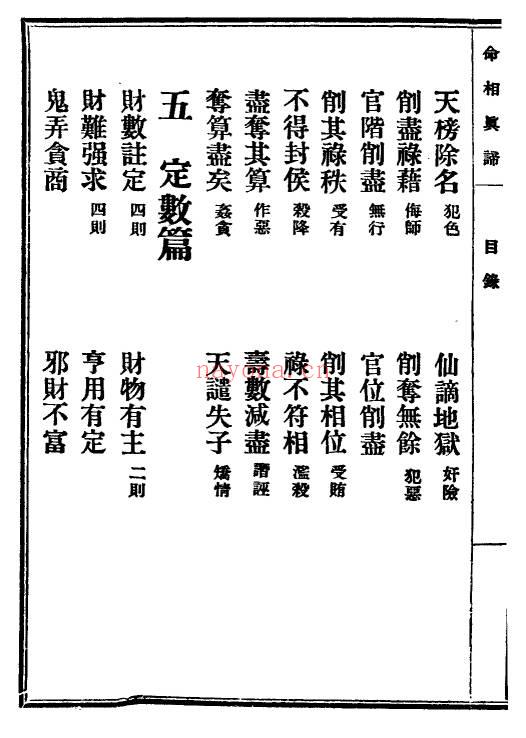 命相眞諦 目錄
天榜除名 犯色 仙謫地獄 奸險
削盡祿藉 侮師 削奪無餘 犯惡
官階削盡 無行 官位削盡
削其祿秩 受有 削其相位 受賄
不得封侯 殺降 祿不符相 濫殺
盡奪其算 作惡 壽數減盡 譖誣
奪算盡矣 姦貪 天譴失子 矯情
五 定數篇
財數註定 四則 財物有主 二則
財難强求 四則 亨用有定
鬼弄貪商 邪財不富
nayona.cn